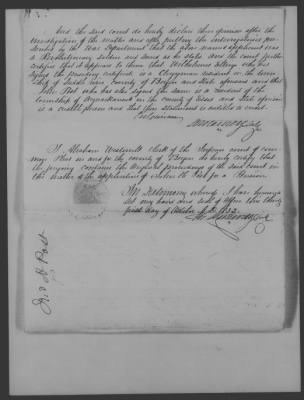 And the said court do hereby declare their opinion after the
investigation of the matter and after putting the interrogatories pre-
scribed by the War Department that the above named applicant was
a Revolutionary soldier and served as he states And the court further
certifies that it appears to them that who has
signed the preceding certificate is a Clergyman resident in the town-
ship of Saddle River County of Bergen and State aforesaid and that
John Post who has also signed the same is a resident of the
township of Acquackanonk in the county of Essex and State aforesaid
is a credible person and that their statement is entitled to credit

I Abraham Westervelt clerk of the Inferior court of com-
mon Pleas in and for the county of Bergen do hereby certify that
the foregoing contains the original proceedings of the said court in
the matter of the application of Post for a Pension
In Testimony whereof I have hereunto
set my hand and seal of office this thirty
first day of October A.D. 1832
Post